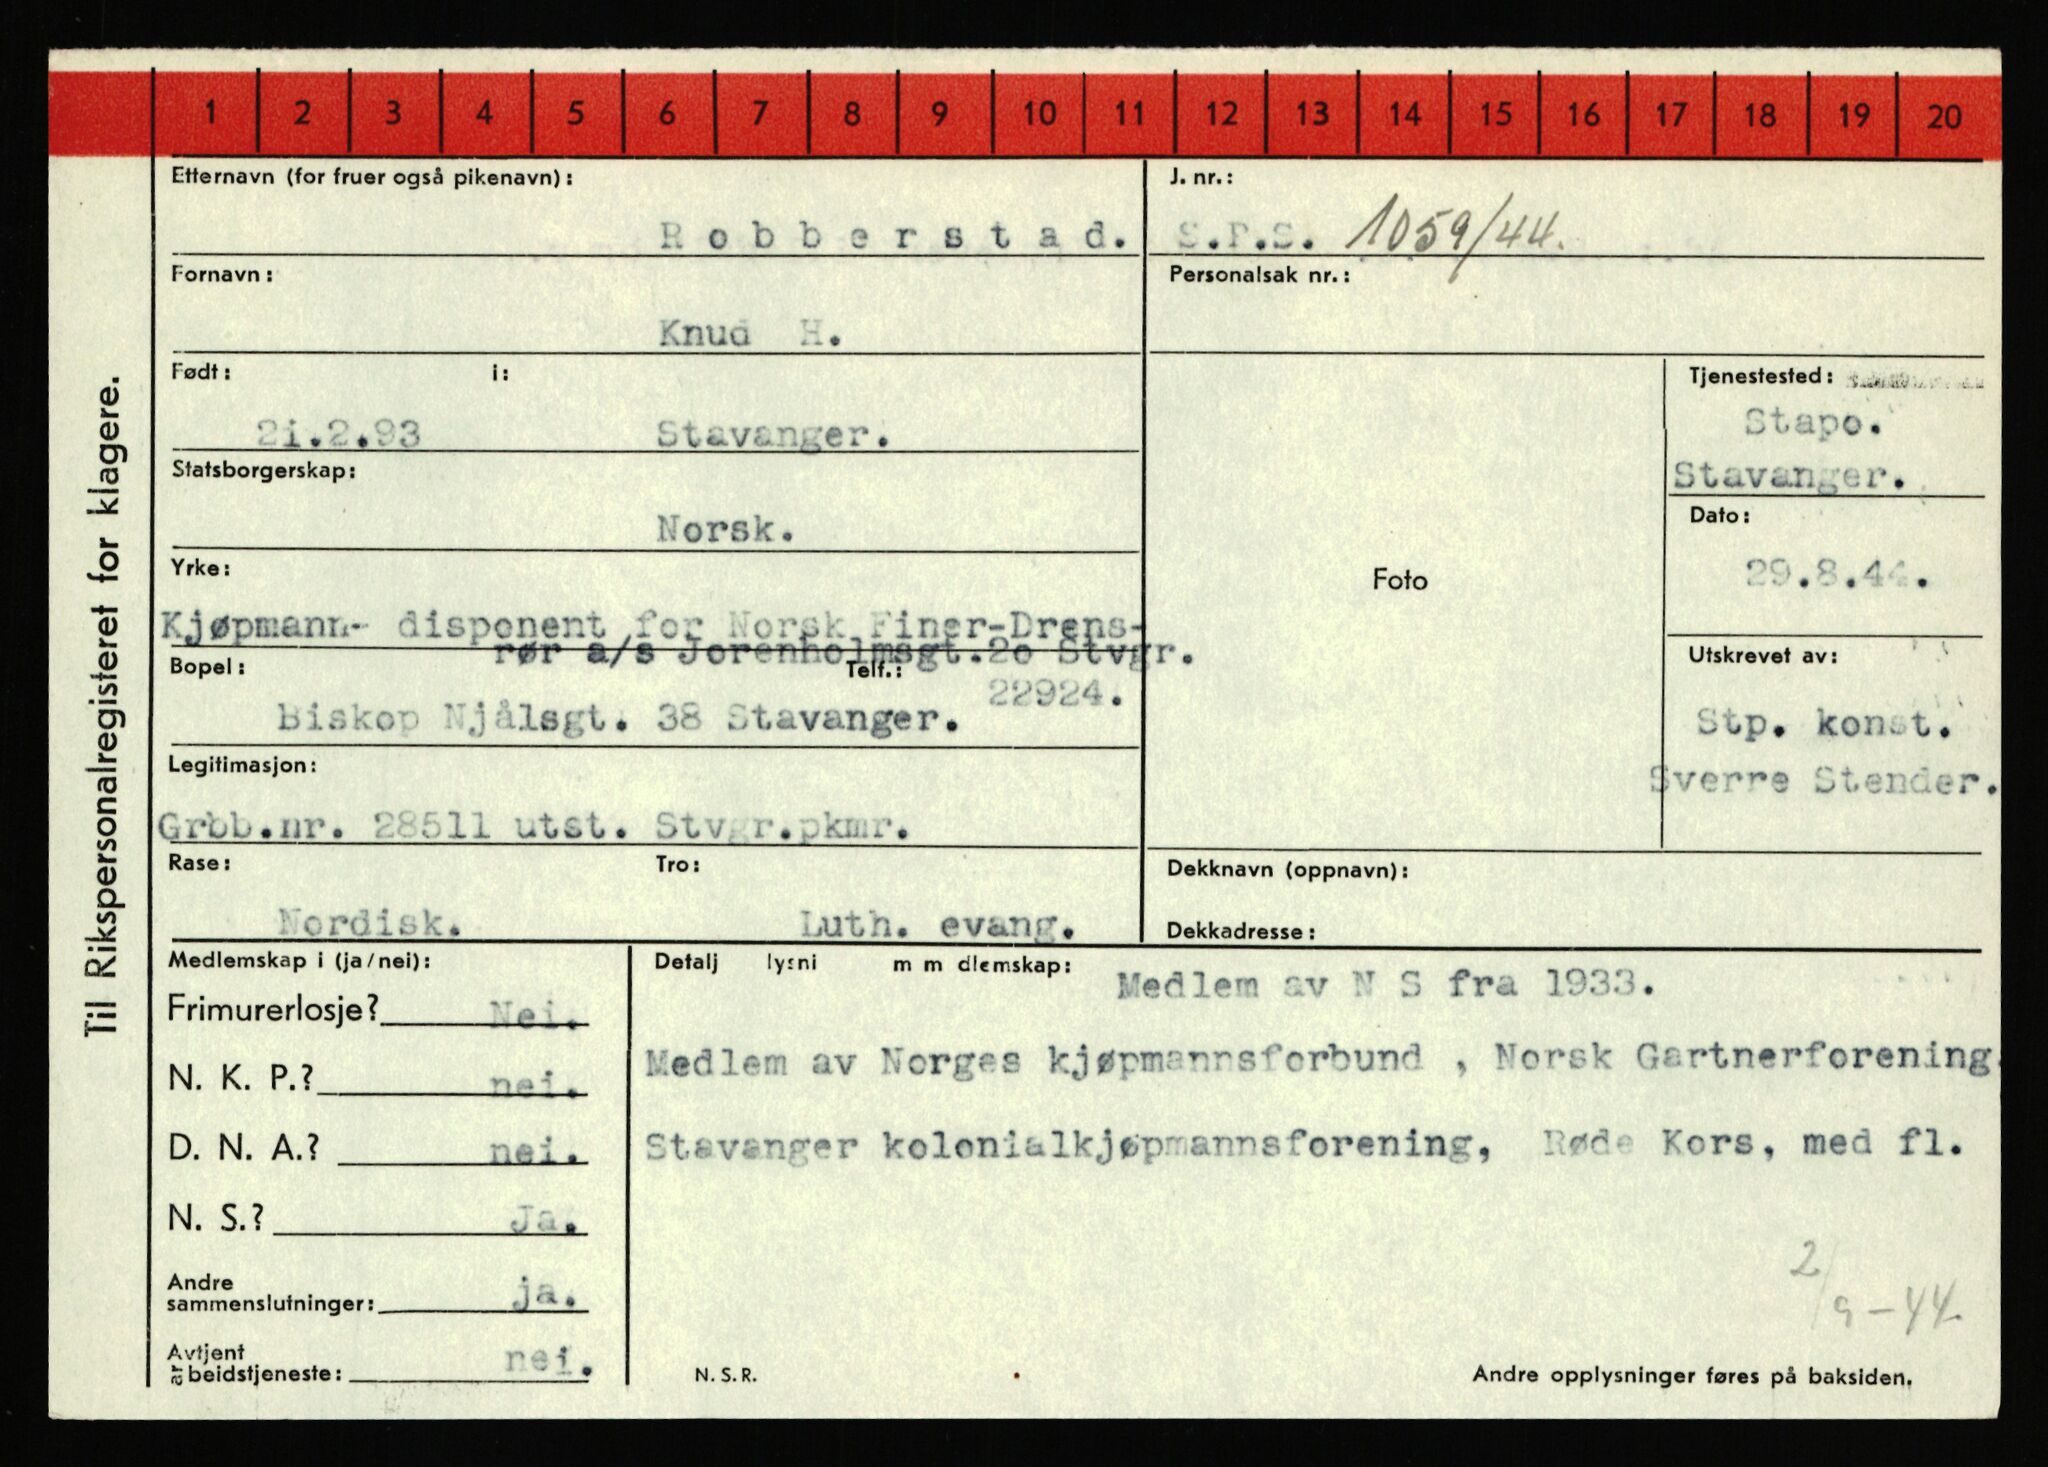 1 2 3 4 5 6 7 8 9 10 11 12 13 14 15 16 17 18 19 20
Til Rikspersonalregisteret for klagere.
Etternavn (for fruer også pikenavn):
Robberstad.
Fornavn:
Knud H.
Født: i:
21.2.93 Stavanger.
Statsborgerskap:
Norsk.
Yrke:
Kjøpmann- disponent for Norsk Finer-Drens-
rør a/s Jorenholmsgt.20 Stvgr.
Bopel: Telf.:
22924.
Biskop Njålsgt. 38 Stavanger.
Legitimasjon:
Grbb.nr. 28511 utst. Stvgr.pkmr.
Rase: Tro:
Nordisk. Luth. evang.
J. nr.:
S.P.S. 1059/44.
Personalsak nr.:
Foto
Tjenestested:
Stapo.
Stavanger.
Dato:
29.8.44.
Utskrevet av:
Stp. konst.
Sverre Stender.
Dekknavn (oppnavn):
Dekkadresse:
Medlemskap i (ja/nei):
Frimurerlosje? Nei.
N. K. P.? nei.
D. N. A.? nei.
N. S.? Ja.
Andre
sammenslutninger: ja.
Avtjent
arbeidstjeneste: nei.
Detalj lysni m m dlemskap:
Medlem av N S fra 1933.
Medlem av Norges kjøpmannsforbund , Norsk Gartnerforening.
Stavanger kolonialkjøpmannsforening, Røde Kors, med fl.
2/9-44.
N. S. R.
Andre opplysninger føres på baksiden.